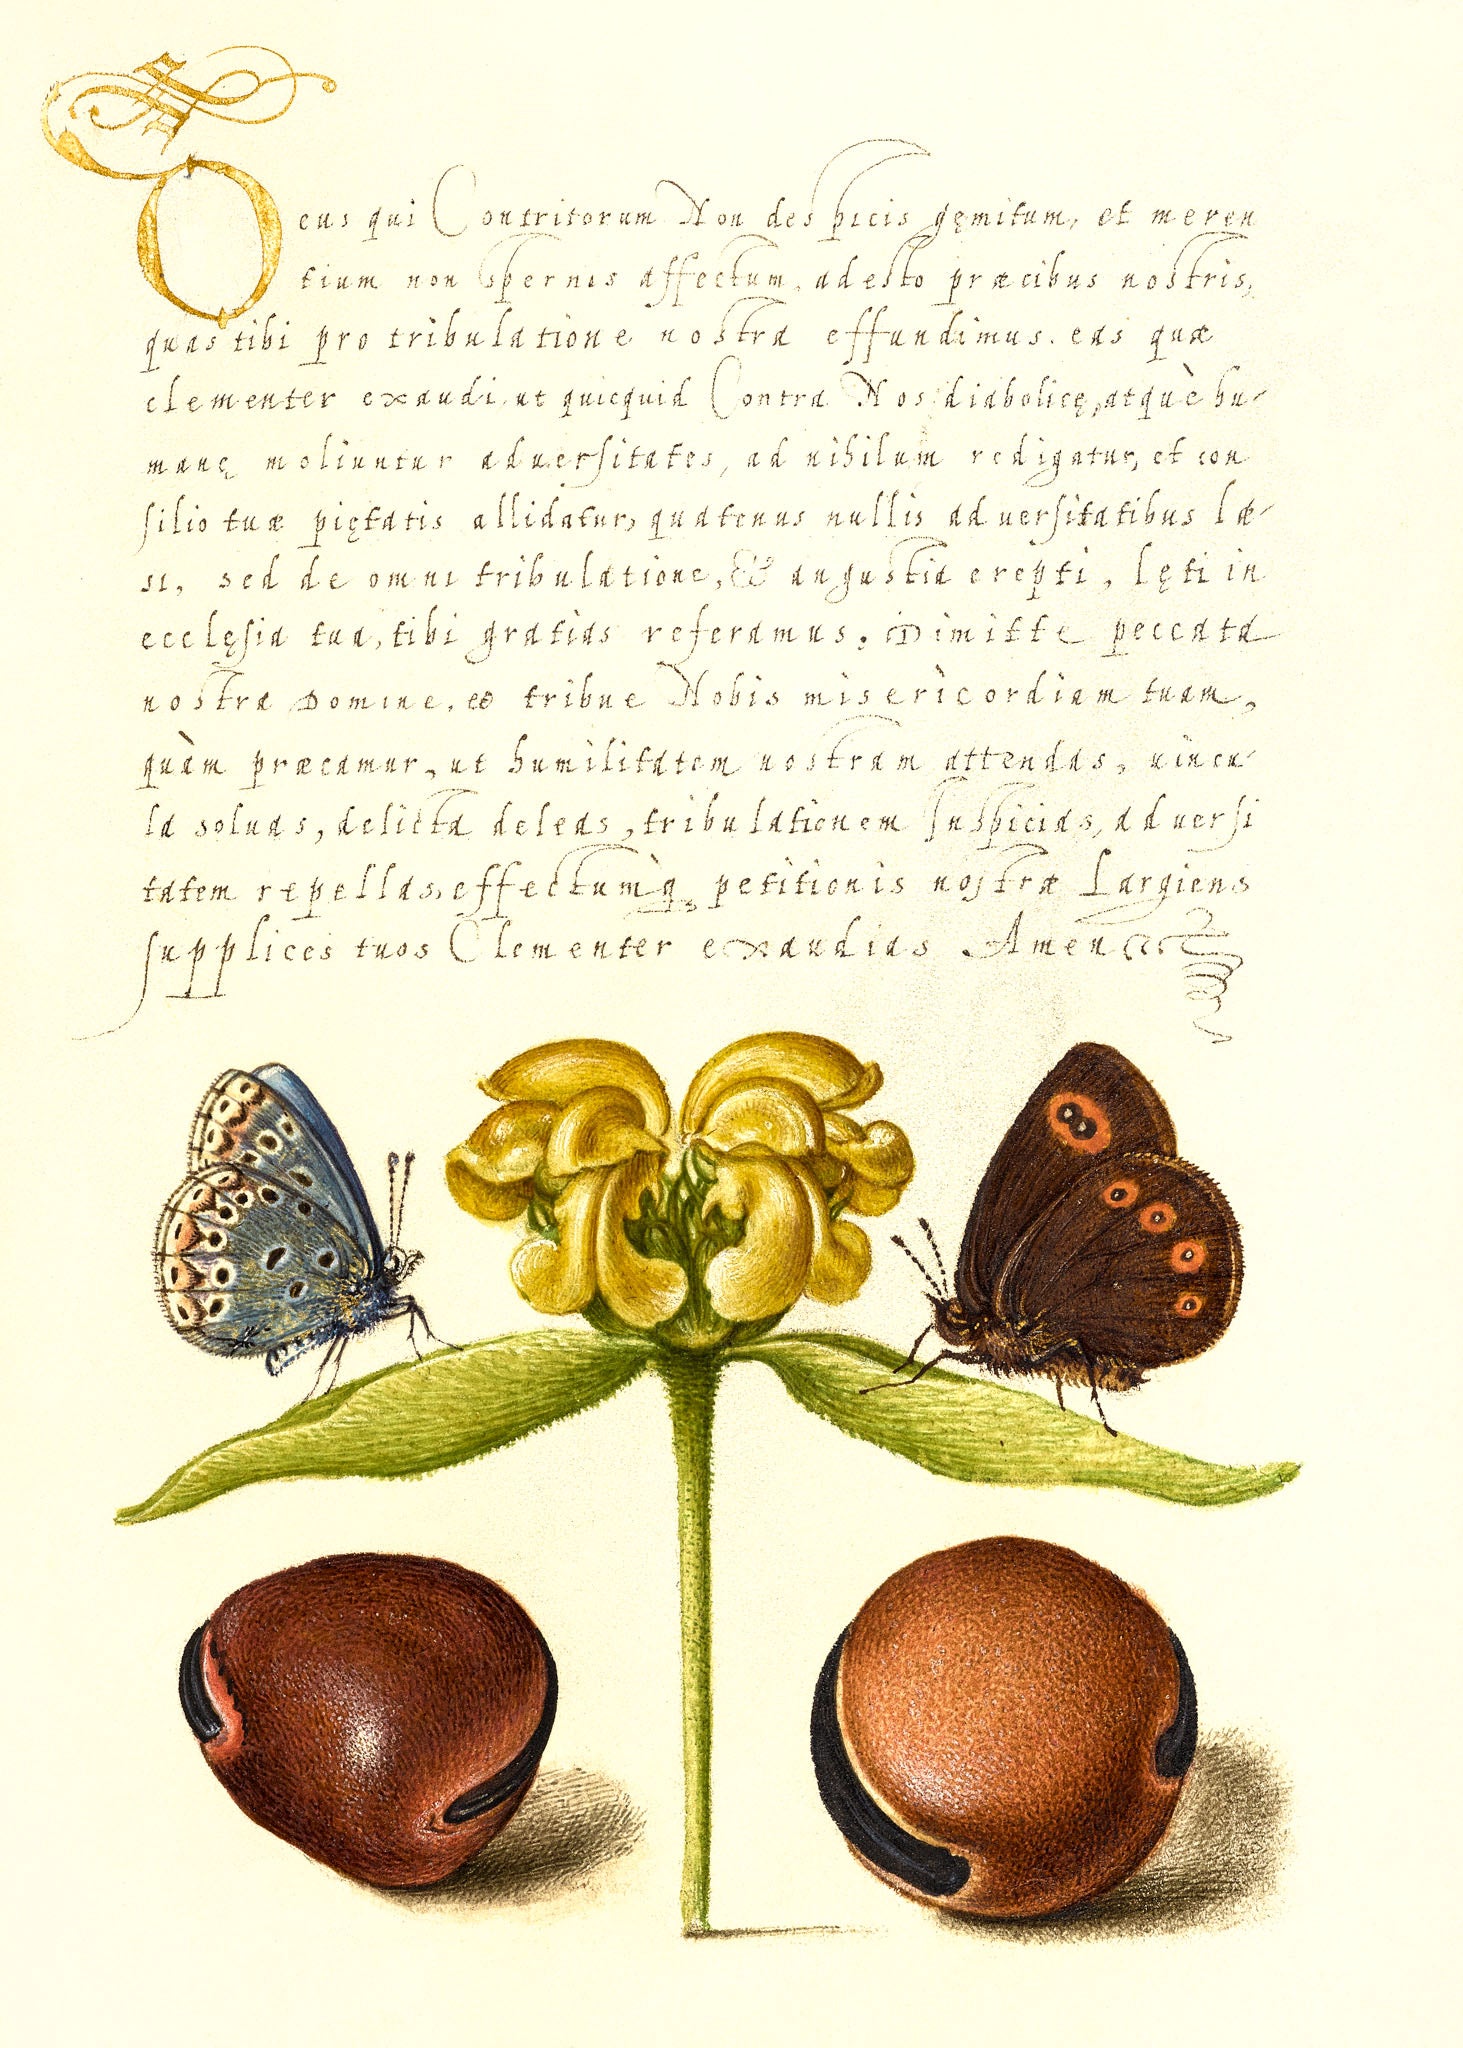 Deus qui Contritorum Non despicis gęmitum, et meren
tium non spernis affectum, adesto præcibus nostris,
quas tibi pro tribulatione nostra effundimus. eas quæ
clementer exaudi, ut quicquid Contra Nos diabolicę, atquè hu-
manę moliuntur aduersitates, ad nihilum redigatur, et con
silio tuæ piętatis allidatur, quatenus nullis aduersitatibus læ-
si, sed de omni tribulatione, & angustia erepti, lęti in
ecclęsia tua, tibi gratias referamus. Dimitte peccata
nostra Domine, et tribue Nobis misericordiam tuam,
quàm præcamur, ut humilitatem nostram attendas, uincu-
la soluas, delicta deleas, tribulationem Inspicias, aduersi
tatem repellas, effectumq̀ petitionis nostræ Largiens
supplices tuos Clementer exaudias Amen